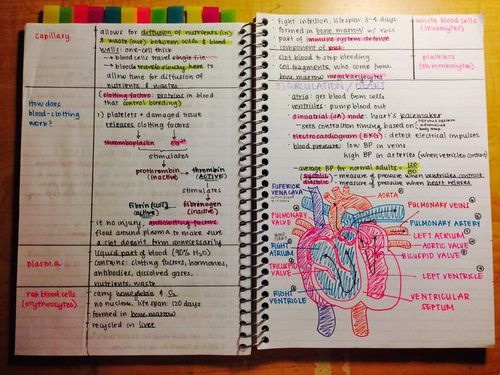 capillary
allows for diffusion of nutrients (in)
& waste (out) between cells & blood
walls: one-cell thick
blood cells travel single file
blood travels slowly here to
allow time for diffusion of
nutrients & wastes
How does
blood-clotting
work?
clotting factors: proteins in blood
that control bleeding
1) platelets + damaged tissue
releases clotting factors
thromboplastin
stimulates
prothrombin
(inactive)
thrombin
(ACTIVE)
stimulates
fibrin (clot)
(active)
fibrinogen
(inactive)
if no injury, anticlotting factors
float around plasma to make sure
a clot doesn't form unnecessarily
plasma
liquid part of blood (90% H2O)
contains: clotting factors, hormones,
antibodies, dissolved gases,
nutrients, waste
red blood cells
(erythrocytes)
carry hemoglobin & O2
no nucleus, lifespan: 120 days
formed in bone marrow
recycled in liver
fight infection, lifespan: 3-4 days
formed in bone marrow w/ rbcs
part of immune system defense
component of pus
white blood cells
(leukocytes)
clot blood to stop bleeding
cell fragments who come from
bone marrow megakaryocytes
platelets
(thrombocytes)
3) CIRCULATION / HEART
atria: get blood from cells
ventricles: pump blood out
sinoatrial (SA) node: heart's pacemaker
sets contraction timing based on
electrocardiogram (EKG): detect electrical impulses
blood pressure: low BP in veins
high BP in arteries (when ventricles contract)
average BP for normal adults = 120
80
systolic - measure of pressure when ventricles contract
diastolic - measure of pressure when heart relaxes
SUPERIOR
VENA CAVA
AORTA
PULMONARY
VALVE
PULMONARY VEINS
PULMONARY ARTERY
LEFT ATRIUM
AORTIC VALVE
BICUSPID VALVE
RIGHT
ATRIUM
TRICUSPID
VALVE
LEFT VENTRICLE
RIGHT
VENTRICLE
VENTRICULAR
SEPTUM